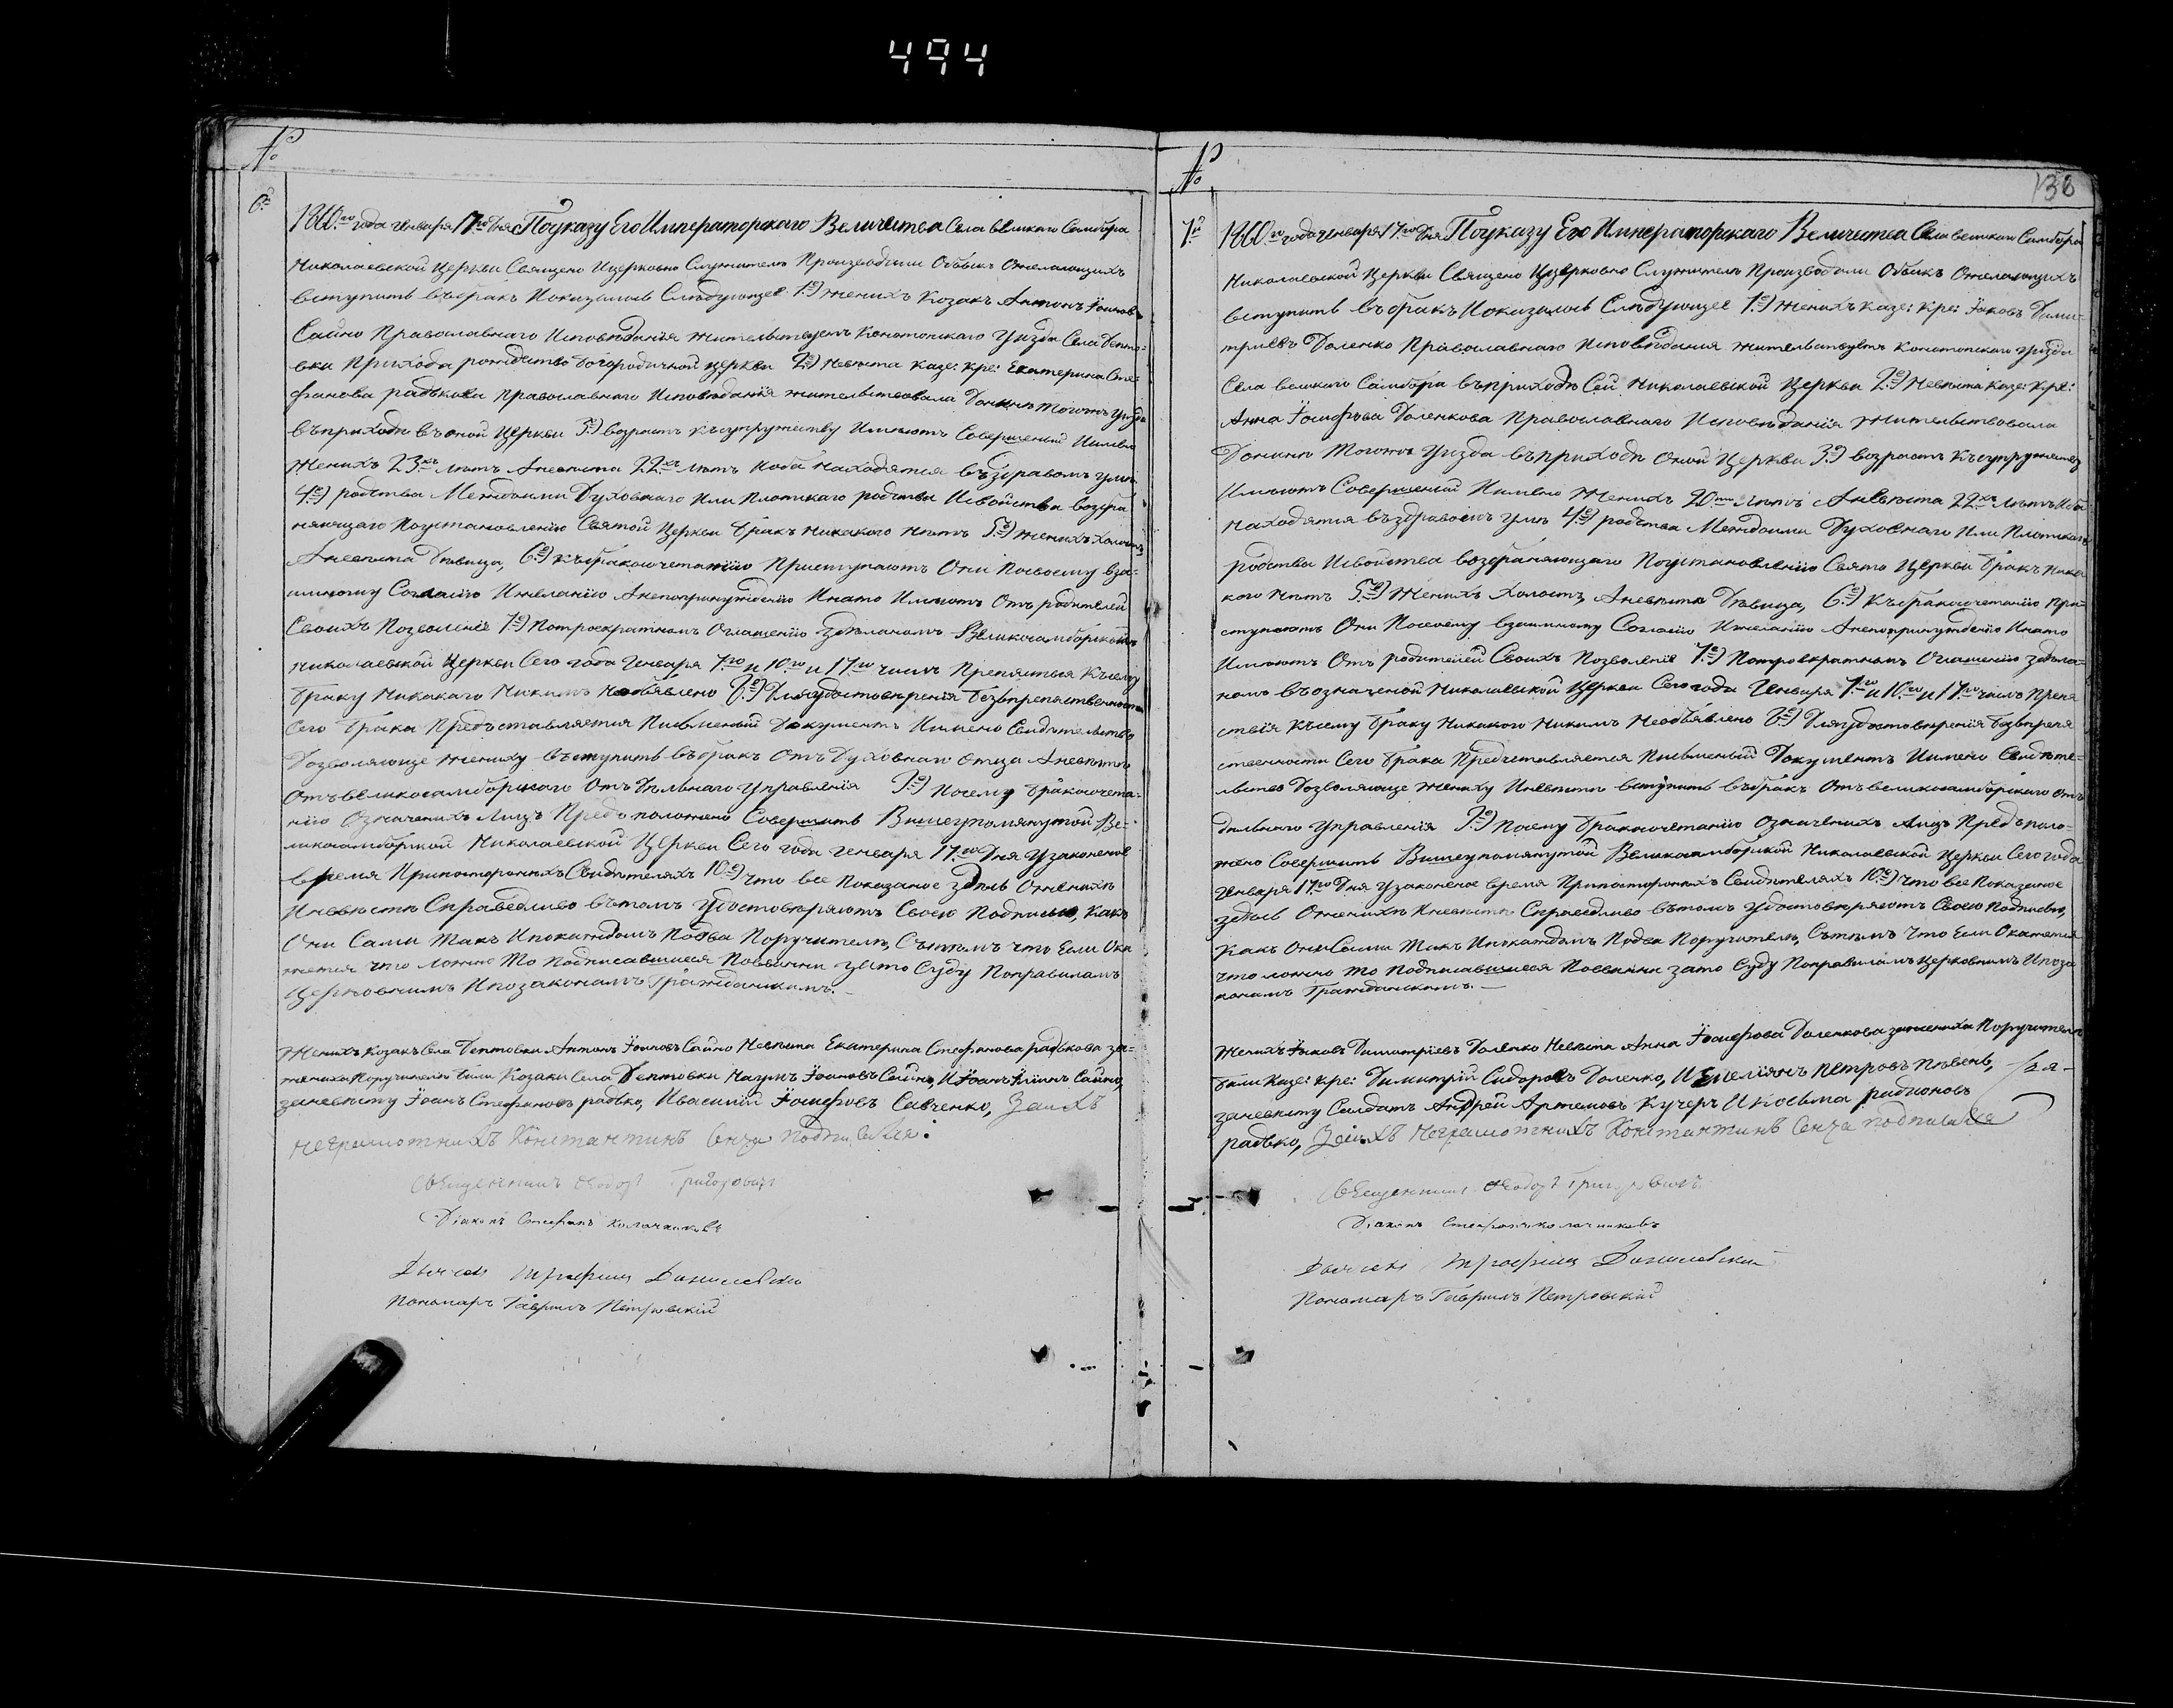 494
№
6й
1860го года генваря 17го дня По указу Его Императорского Величества Села великого Самбора
Николаевской Церкви Священо Ицерковно Служители Производили Обыск Ожелающихъ
вступить въбракъ Иоказалось Слѣдующее 1е) женихъ Козакъ Антонъ Іоановъ
Сайко Православнаго Исповѣданія жительствуетъ Конотопского Уизда Села Депто-
вки Прихода рождество богородичной церкви 2е) Невѣста казе: кре: Екатерина Сте-
фанова радькова православнаго Исповѣданія жительствовала Донынѣ Тогожъ Уизда
въприходѣ въоной Церкви 3е) возрастъ Ксупружеству Имѣютъ Совершеный Иимено
Женихъ 23хъ лѣтъ Аневѣста 22хъ лѣтъ Иоба находятся въздравомъ умѣ
4е) родства Междоими Духовнаго Или Плотскаго родства Исвойства возбра
няющаго Поустановленію Святой Церкви бракъ никакого нѣтъ 5е) женихъ холостъ
Аневѣста Дѣвица, 6е) Къбракосочетанію Приступаютъ Они Посвоему вза-
имному Согласію Ижеланію Анепопринужденію Инато Имѣютъ Отъ родителей
Своихъ Позволеніе 7е) Потроекратномъ Оглашенію здѣланомъ Великосамборской
николаевской Церкви Сего года Генваря 7го и 10го и 17го числъ Препятствія Късему
браку Никакаго Никимъ Необявлено 8е) Дляудостовѣренія безъпрепятственности
Сего брака Предъставляется Письменый Документъ Имено Свидѣтельство
Дозволяюще жениху въступить въбракъ Отъ Духовнаго Отца Аневѣстѣ
Отъвеликосамборского Отъдѣльнаго Управленія 9е) Посему бракосочета-
нію Означеныхъ Лицъ Предположено Совершить Вишеупомянутой Ве-
ликосамборской Николаевской Церкви Сего года Генваря 17го Дня Узаконеное
время Припосторонихъ Свидѣтеляхъ 10е) что все Показаное здѣсь Оженихѣ
Иневѣстѣ Справедливо вътомъ Удостовѣряютъ Своею Подписью, Какъ
Они Сами Такъ Ипокаждомъ Подва Поручителю, Сътѣмъ что Если Ока
жется что ложно То Подписавшиеся Повинни зато Суду Поправиламъ
Церковнимъ Ипозаконамъ Гражданскимъ.
Женихъ Козакъ Села Дептовки Антонъ Іоановъ Сайко Невѣста Екатерина Стефанова радькова за-
жениха Поручители били Козаки Села Дептовки Наумъ Іоановъ Сайко, И Іоанъ Сайко,
заневѣсту Іоанъ Стефановъ радько, Ивасилій Іосифовъ Савченко, Заихъ
неграмотнихъ Константинъ Сенза подписался:
Священникъ Ѳеодоръ Григоровичъ
Діаконъ Стефанъ Колачниковъ
Дьячокъ Трофимъ Данилевскій
Пономаръ Гаврилъ Петровскій
№
136
7й
1860го года генваря 17го дня По указу Его Императорскаго Величества Села великого Самбора
Николаевской Церкви Священо Ицерковно Служители Производили Обыскъ Ожелающихъ
вступить въбракъ Иоказалось Слѣдующее 1е) женихъ казе: кре: Іаковъ Дими-
тріевъ Доленко Православнаго Исповѣдания жительствуетъ Конотопского уизда
Села великого Самбора въприходѣ Сей николаевской Церкви 2е) Невѣста казе: кре:
Анна Іосифова Доленкова Православнаго Исповѣданія Жительствовала
Донынѣ Тогожъ Уизда въприходѣ Оной Церкви 3е) возрастъ Късупружеству
Имѣютъ Совершеный Иимено Женихъ 20ти лѣтъ Аневѣста 22хъ лѣтъ Иоба
находятся въздравомъ умѣ 4е) родства Междоими Духовнаго Или Плотскаго
родства Исвойства возбраняющаго Поустановленію Свято Церкви бракъ Ника
кого нѣтъ 5е) Женихъ Холостъ, Аневѣста Дѣвица, 6е) Къбракосочетанію При-
ступаютъ Они Посвоему взаимному Согласію Ижеланію Анепопринужденію Инато
Имѣютъ Отъ родителей Своихъ Позволеніе 7е) Потроекратномъ Оглашенію здѣла-
номъ въозначеной Николаевской Церкви Сего года Генваря 7го и 10го и 17го числъ Препя
ствія Късему браку Никакого Никимъ Необъявлено 8е) Дляудостовѣренія безъпрепя
ственности Сего брака Предъставляется Письменый Документъ Иимено Свидѣте-
льство Дозволяюще жениху Иневѣстѣ вступить въбракъ Отъвеликосамборского Отъ
дѣльнаго Управленія 9е) Посему бракосочетанію Означеныхъ Лицъ Предъполо-
жено Совершить Вишеупомянутой Великосамборской Николаевской Церкви Сего года
Генваря 17го Дня Узаконеное время Припосторонихъ Свидѣтеляхъ 10е) что все Показаное
здѣсь Оженихѣ Иневѣстѣ Справедливо вътомъ Удостовѣряютъ Своею Подписью,
Какъ Они Сами Такъ Ипокаждомъ Подва Поручителю, Сътѣмъ что Если Окажется
что ложно то Подписавшиеся Повинни зато Суду Поправиламъ Церковнимъ Ипоза
конамъ Гражданскимъ.
Женихъ Іаковъ Димитріевъ Доленко Невѣста Анна Іосифова Доленкова зажениха Поручители
били Казе: Кре: Димитрій Сидоровъ Доленко, И Емеліянъ Петровъ Пѣвень,
заневѣсту Салдатъ Андрей Артемовъ Кучеръ Икосьма радионовъ
радько, Заихъ Неграмотнихъ Константинъ Сенза подписался
Священникъ Ѳеодоръ Григоровичъ
Діаконъ Стефанъ Колачниковъ
Дьячокъ Трофимъ Данилевскій
Пономаръ Гаврилъ Петровскій